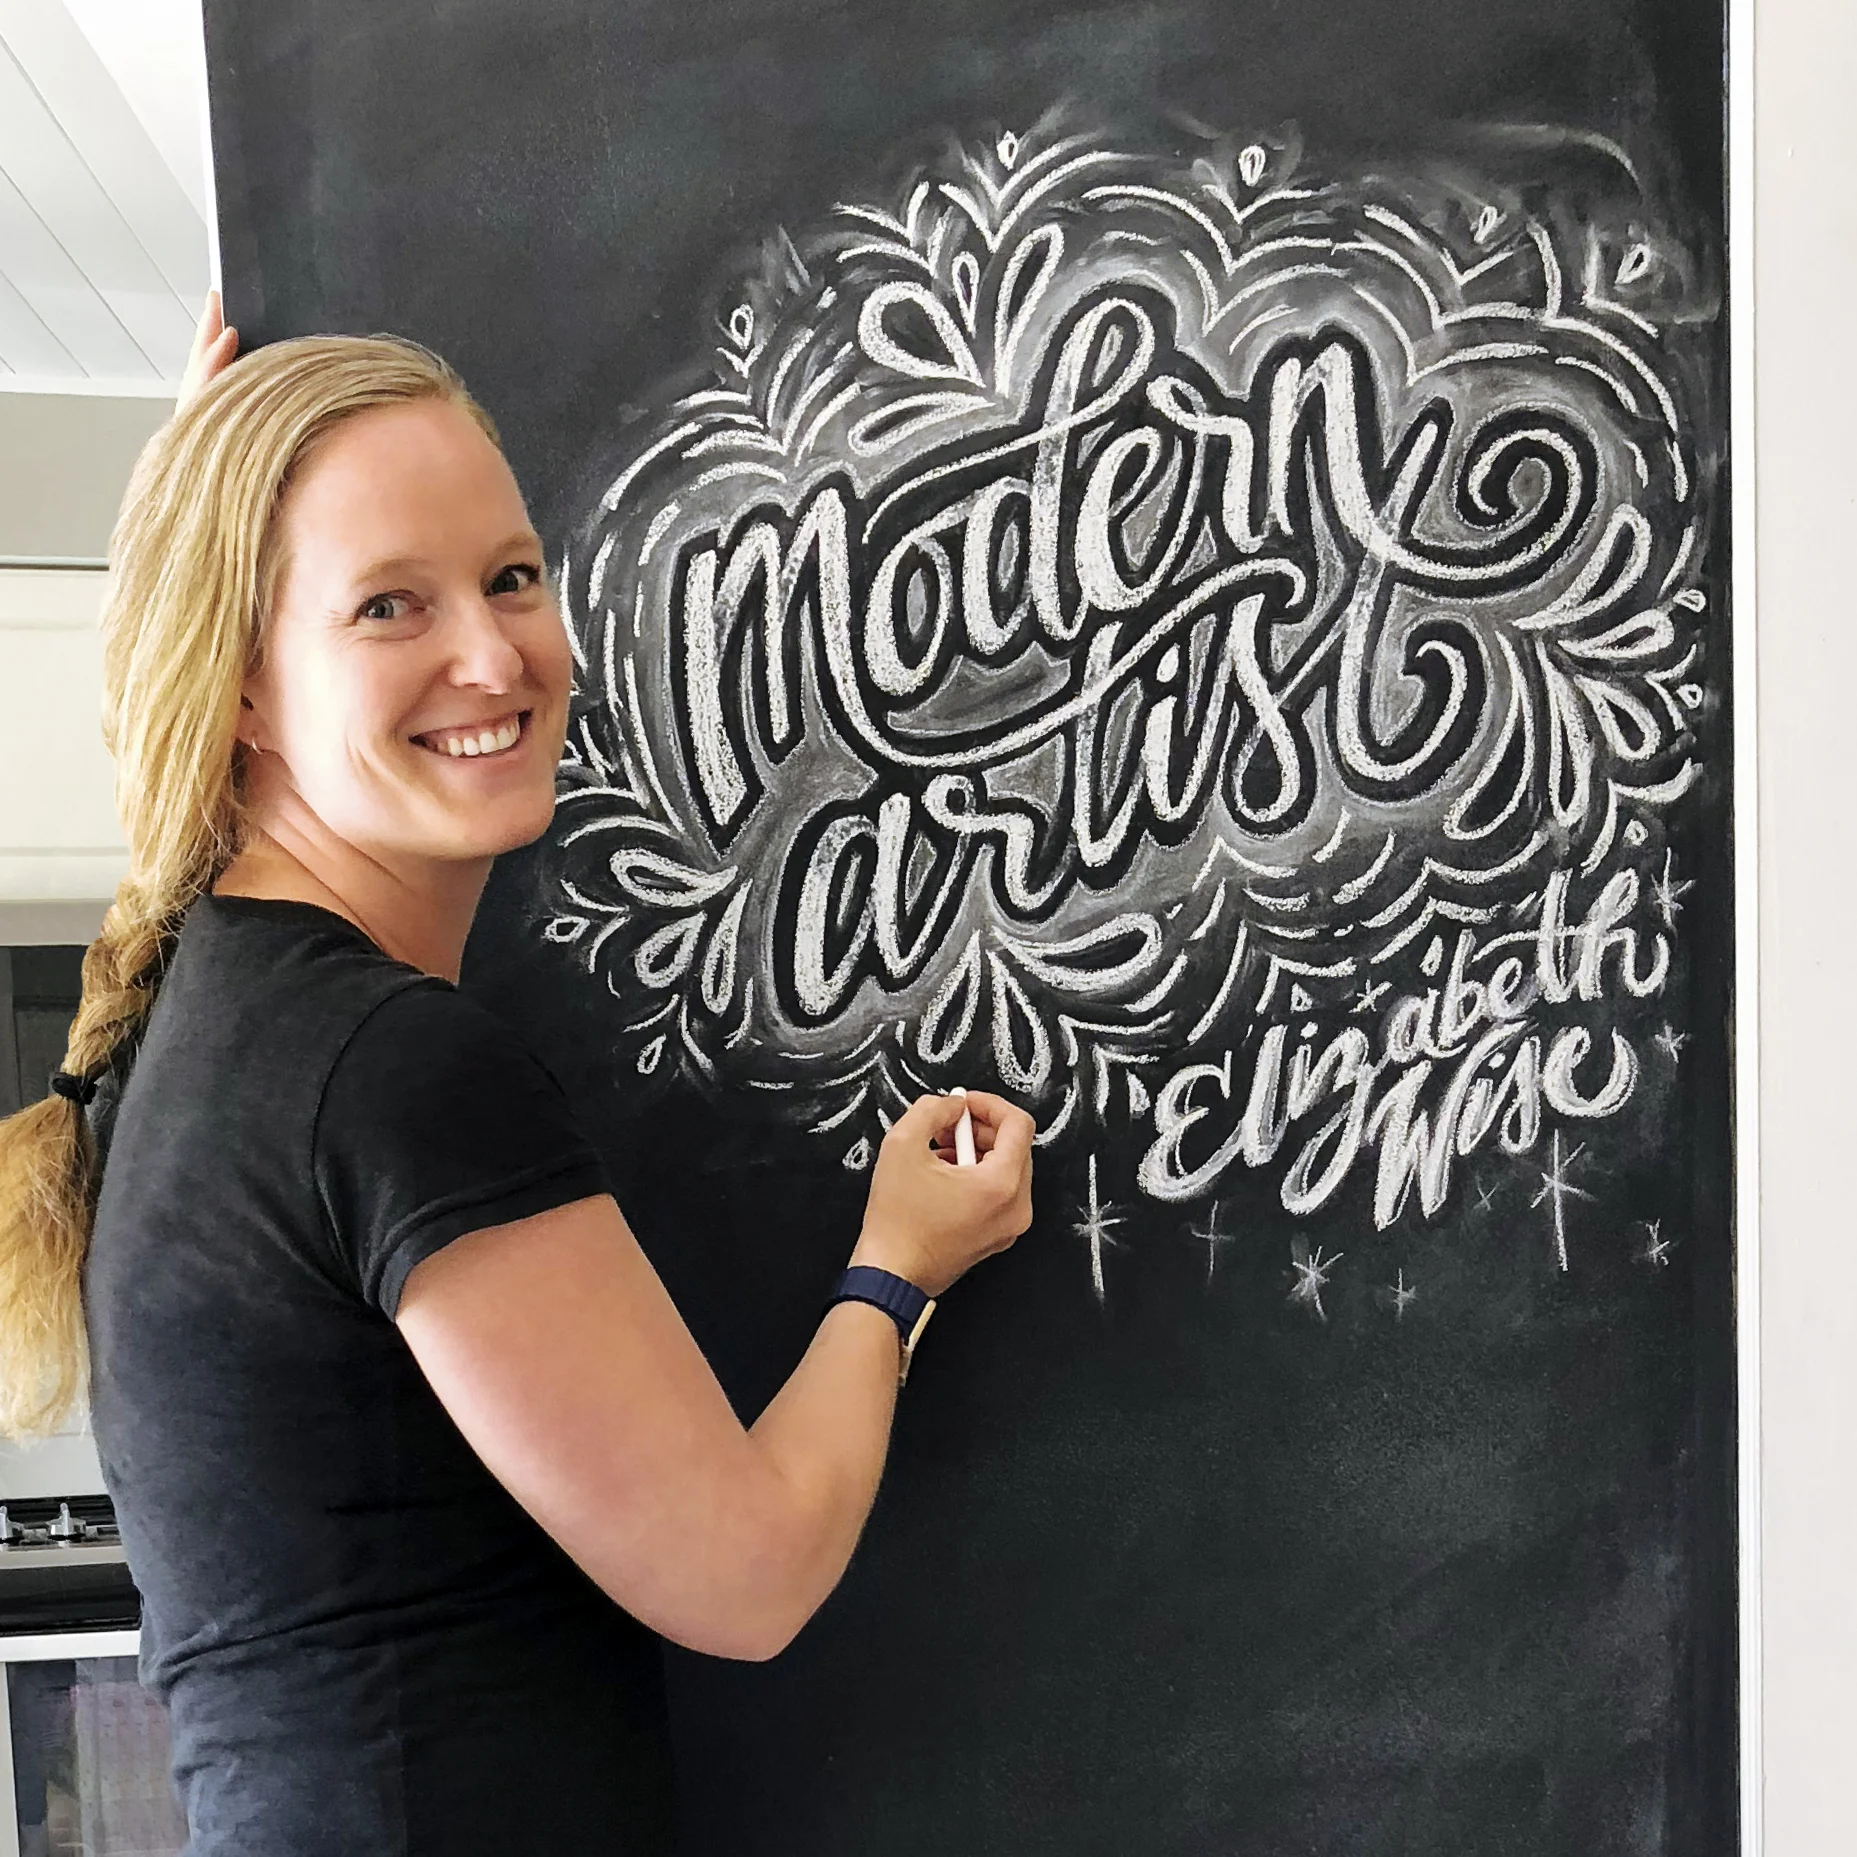 modern
artist
Elizabeth
Wise